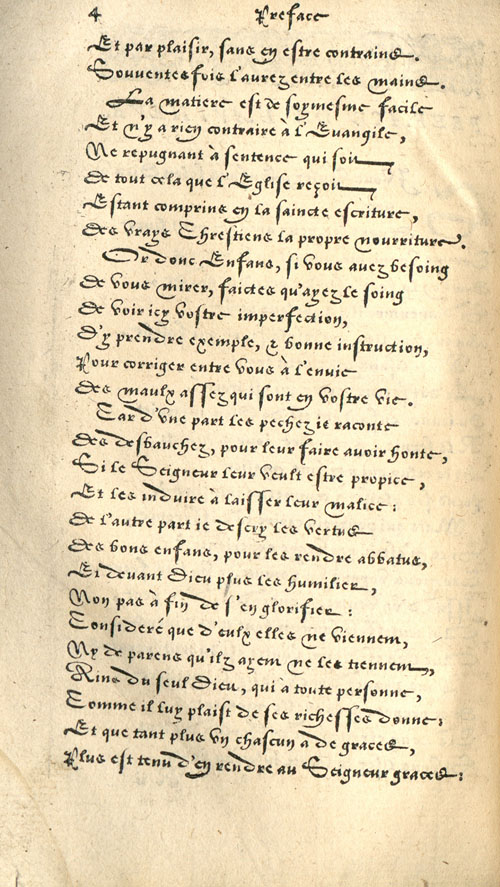 4 Preface
Et par plaisir, sans en estre contrains.
Souventesfois l'aurez entre les mains.
La matiere est de soymesme facile
Et n'y a rien contraire à l'Evangile,
Ne repugnant à sentence qui soit
de tout cela que l'Eglise reçoit,
Estant comprins en la saincte escriture,
des vrays Chrestiens la propre nourriture.
Or donc Enfans, si vous avez besoing
de vous mirer, faictes qu'ayez le soing
de voir icy vostre imperfection,
d'y prendre exemple, & bonne instruction,
Pour corriger entre vous à l'envie
des maulx assez qui sont en vostre vie.
Car d'vne part les pechez ie raconte
des desbauchez, pour leur faire avoir honte,
Si le Seigneur leur veult estre propice,
Et les induire à laisser leur malice:
de l'autre part ie descry les vertus
des bons enfans, pour les rendre abbatus,
Et devant dieu plus les humilier,
Non pas à fin de s'en glorifier:
Consideré que d'eulx elles ne viennent,
Ny de parens qu'ilz ayent ne les tiennent,
Ains du seul dieu, qui a toute personne,
Comme il luy plaist de ses richesses donne:
Et que tant plus vn chascun a de graces,
Plus est tenu d'en rendre au Seigneur graces: